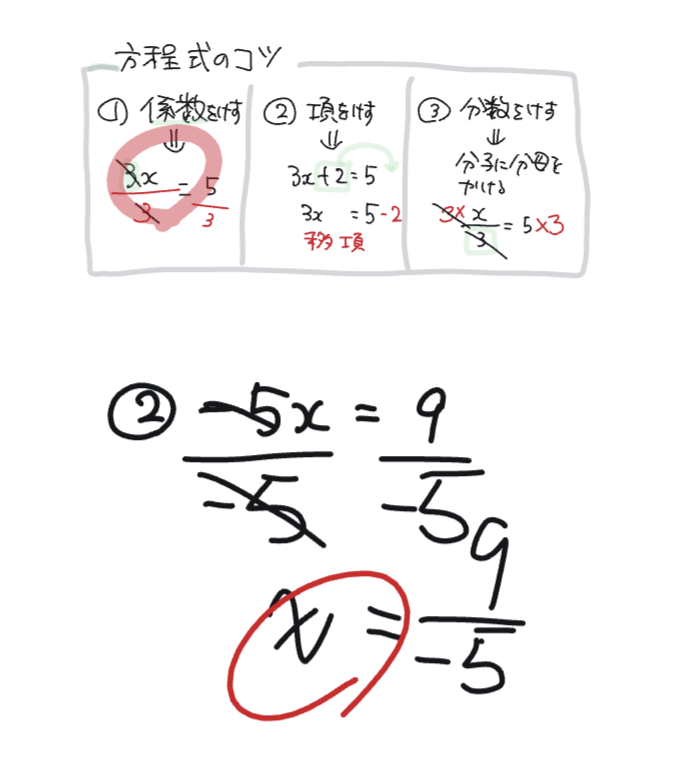 方程式のコツ
① 係数をけす
⇓
3x/3 = 5/3
② 項をけす
⇓
3x+2=5
3x =5-2
移項
③ 分数をけす
⇓
分子に分母を
かける
3× x/3 = 5×3
② -5x/-5 = 9/-5
x = 9/-5